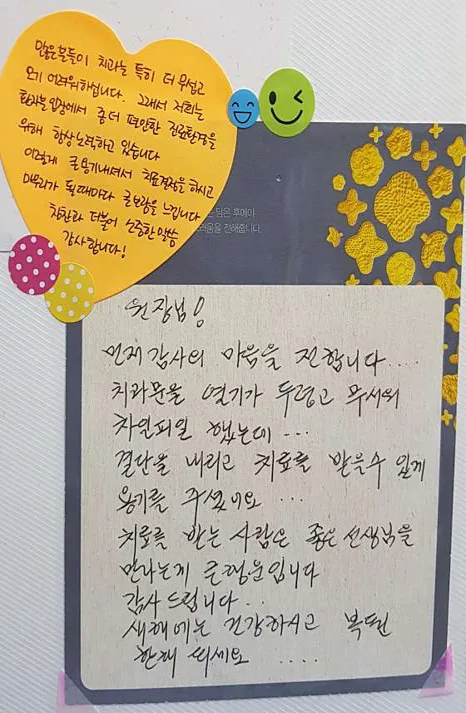 많은분들이 치과는 특히 더 무섭고
오기 어려워하십니다. 그래서 저희는
환자분입장에서 좀더 편안한 진료환경을
위해 항상노력하고 있습니다
이렇게 큰용기내셔서 치료결정을 하시고
마무리가 될때마다 큰보람을 느낍니다
칭찬과 더불어 소중한말씀
감사합니다!
담은 후에야
려움을 전해줍니다.
원장님!
먼저 감사의 마음을 전합니다....
치과문을 열기가 두렵고 무서워
차일피일 했는데...
결단을 내리고 치료를 받을수 있게
용기를 주셨네요...
치료를 받는 사람은 좋은 선생님을
만나는게 큰행운입니다
감사드립니다.
새해에는 건강하시고 복된
한해 되세요....